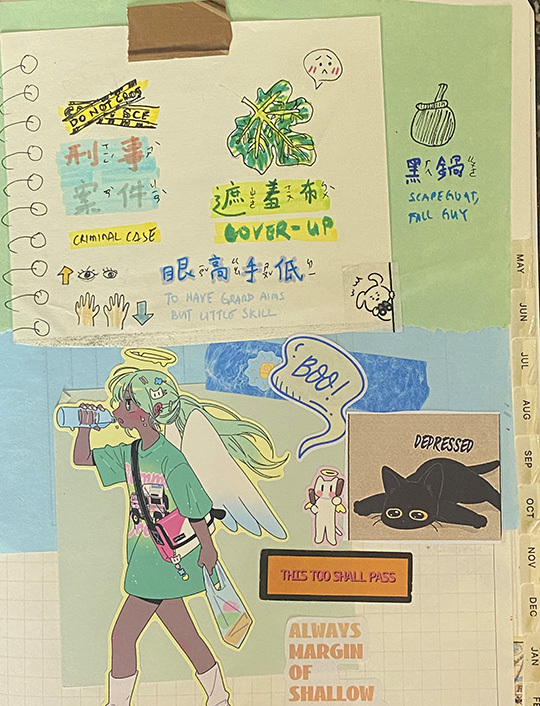 DO NOT CROSS
刑事
案件
CRIMINAL CASE
遮羞布
COVER-UP
黑鍋
SCAPEGOAT,
FALL GUY
眼高手低
TO HAVE GRAND AIMS
BUT LITTLE SKILL
BOO!
DEPRESSED
THIS TOO SHALL PASS
ALWAYS
MARGIN
OF
SHALLOW
MAY
JUN
JUL
AUG
SEP
OCT
NOV
DEC
JAN